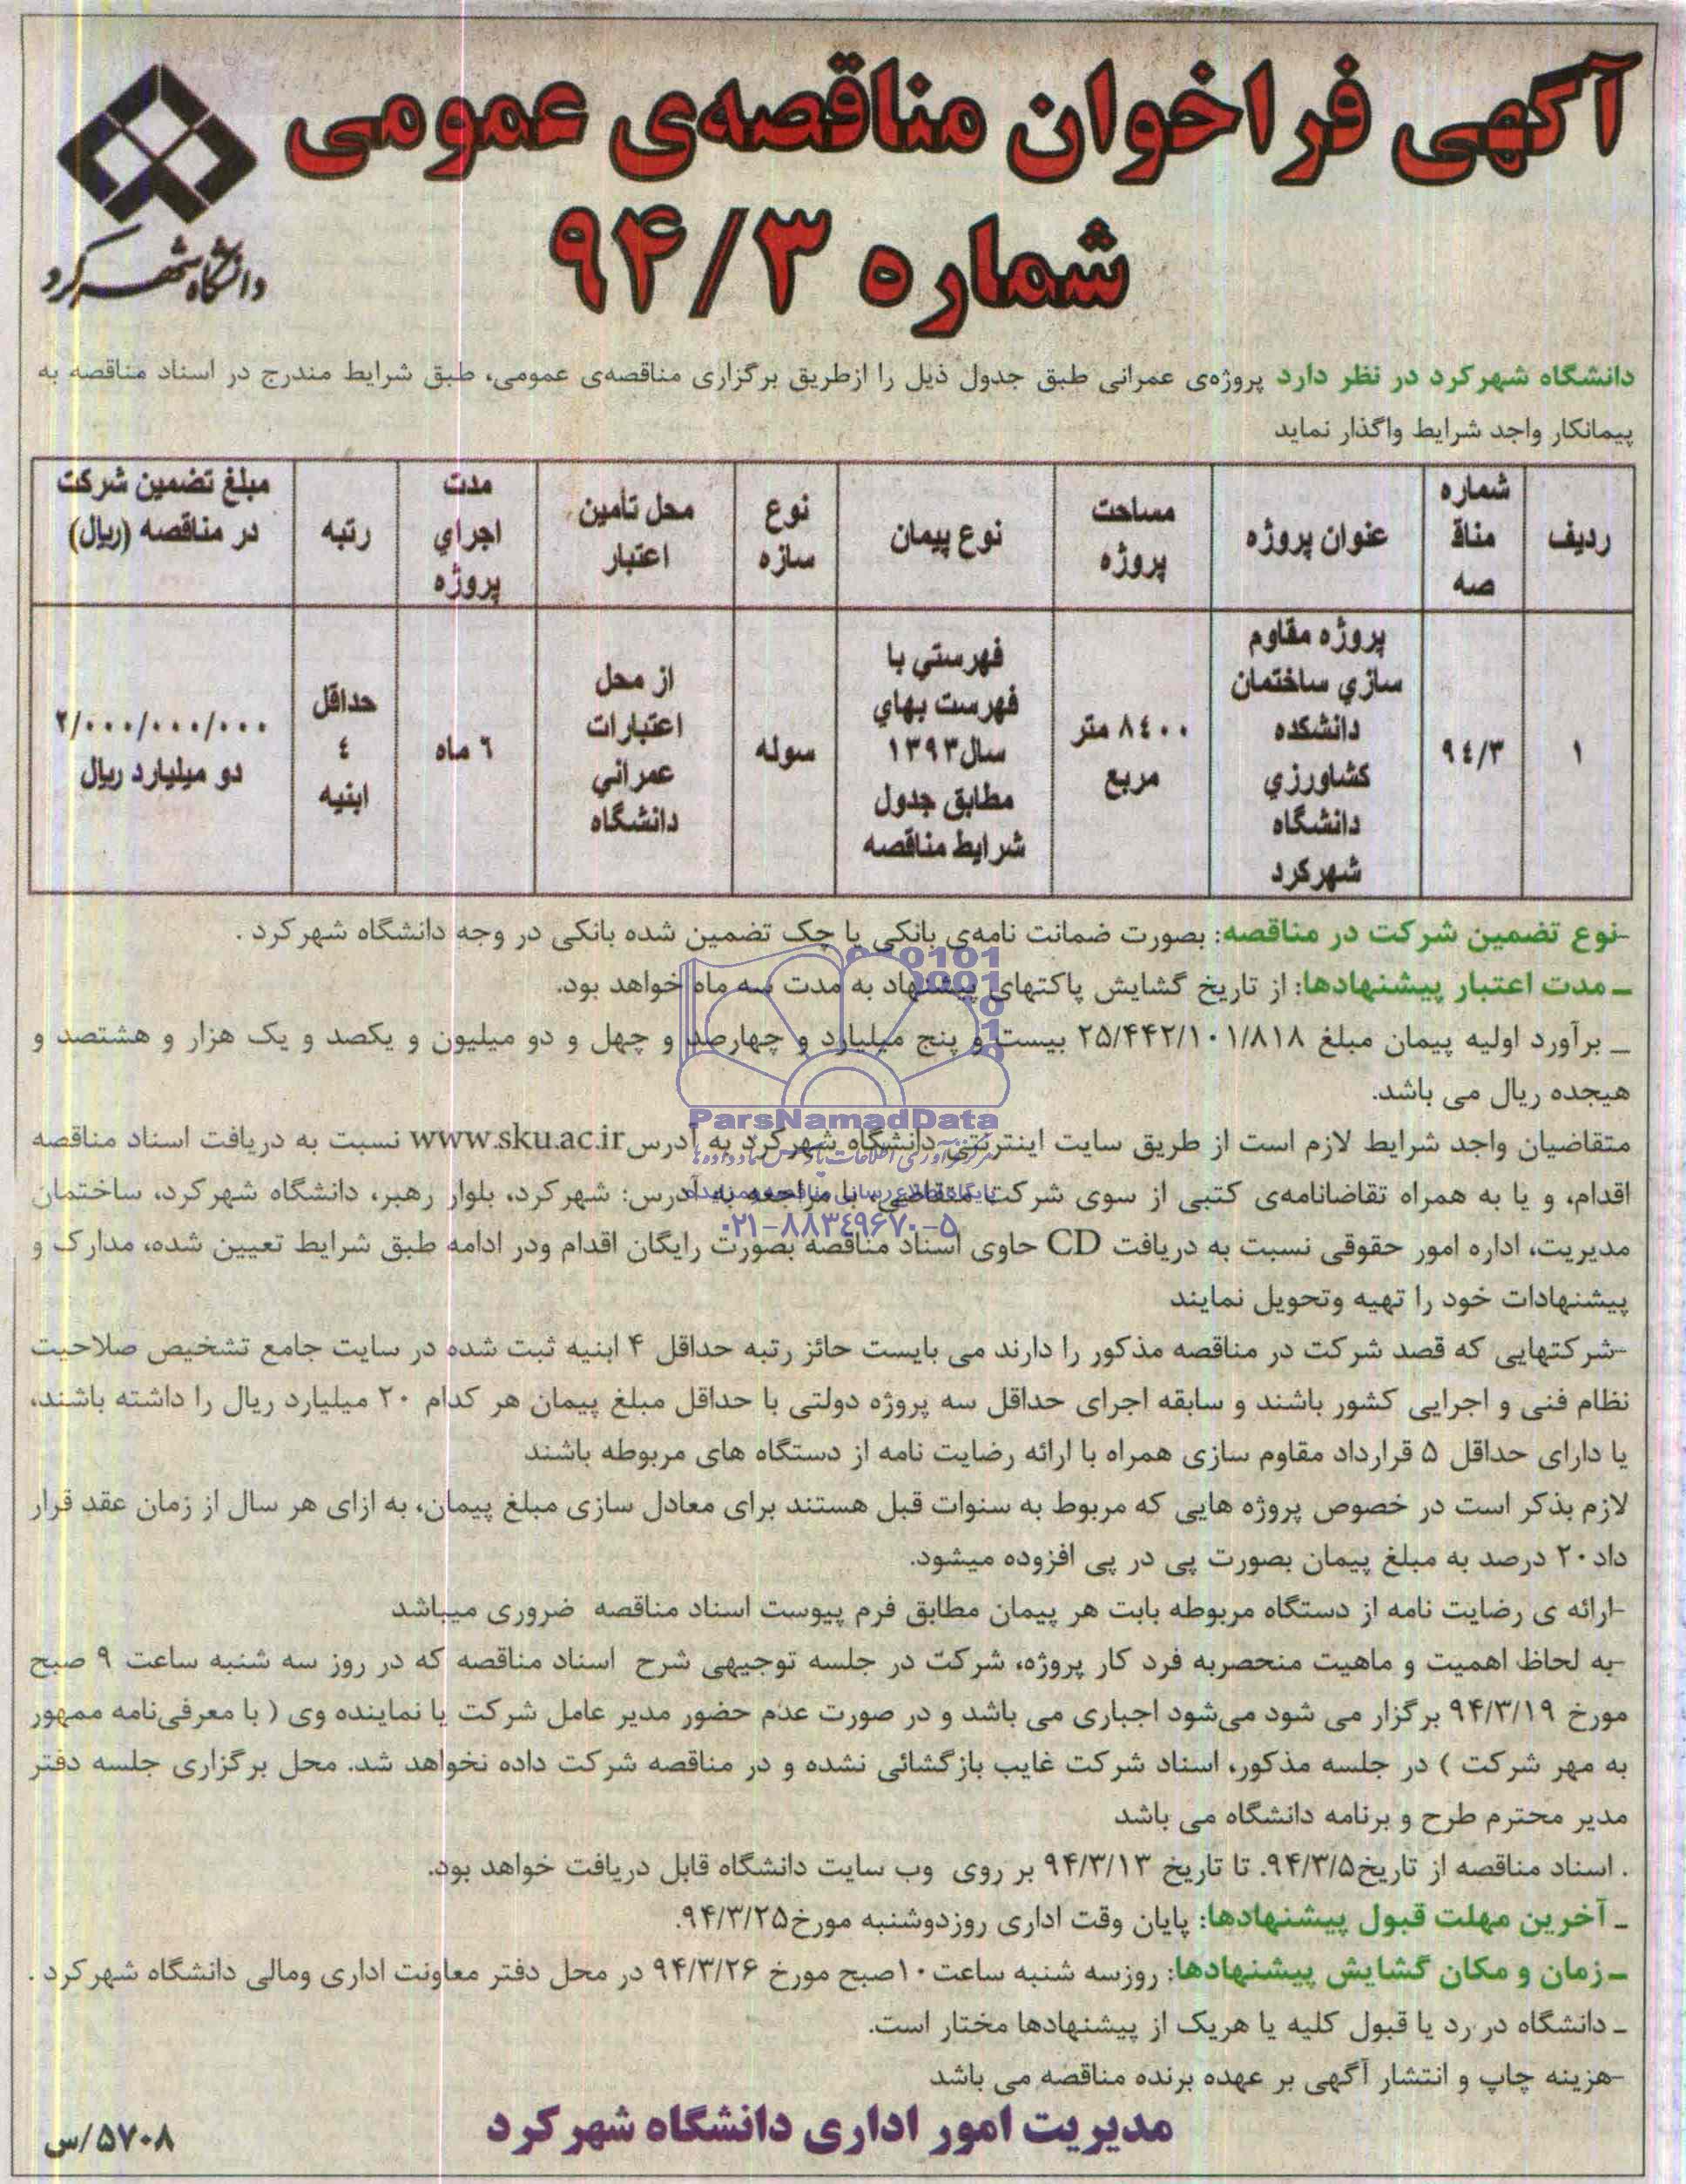 آگهی فراخوان مناقصه‌ی عمومی
شماره ۹۴/۳
دانشگاه شهرکرد
دانشگاه شهرکرد در نظر دارد پروژه‌ی عمرانی طبق جدول ذیل را ازطریق برگزاری مناقصه‌ی عمومی، طبق شرایط مندرج در اسناد مناقصه به
پیمانکار واجد شرایط واگذار نماید
ردیف
شماره
مناق
صه
عنوان پروژه
مساحت
پروژه
نوع پیمان
نوع
سازه
محل تأمین
اعتبار
مدت
اجرای
پروژه
رتبه
مبلغ تضمین شرکت
در مناقصه (ریال)
۱
۹٤/۳
پروژه مقاوم
سازي ساختمان
دانشکده
کشاورزي
دانشگاه
شهرکرد
۸٤۰۰ متر
مربع
فهرستي با
فهرست بهاي
سال۱۳۹۳
مطابق جدول
شرایط مناقصه
سوله
از محل
اعتبارات
عمراني
دانشگاه
٦ ماه
حداقل
٤
ابنیه
۲/۰۰۰/۰۰۰/۰۰۰
دو میلیارد ریال
-نوع تضمین شرکت در مناقصه: بصورت ضمانت نامه‌ی بانکی یا چک تضمین شده بانکی در وجه دانشگاه شهرکرد .
ـ مدت اعتبار پیشنهادها: از تاریخ گشایش پاکتهای پیشنهاد به مدت سه ماه خواهد بود.
ـ برآورد اولیه پیمان مبلغ ۲۵/۴۴۲/۱۰۱/۸۱۸ بیست و پنج میلیارد و چهارصد و چهل و دو میلیون و یکصد و یک هزار و هشتصد و
هیجده ریال می باشد.
متقاضیان واجد شرایط لازم است از طریق سایت اینترنتی دانشگاه شهرکرد به آدرس www.sku.ac.ir نسبت به دریافت اسناد مناقصه
اقدام، و یا به همراه تقاضانامه‌ی کتبی از سوی شرکت متقاضی، با مراجعه به آدرس: شهرکرد، بلوار رهبر، دانشگاه شهرکرد، ساختمان
مدیریت، اداره امور حقوقی نسبت به دریافت CD حاوی اسناد مناقصه بصورت رایگان اقدام ودر ادامه طبق شرایط تعیین شده، مدارک و
پیشنهادات خود را تهیه وتحویل نمایند
-شرکتهایی که قصد شرکت در مناقصه مذکور را دارند می بایست حائز رتبه حداقل ۴ ابنیه ثبت شده در سایت جامع تشخیص صلاحیت
نظام فنی و اجرایی کشور باشند و سابقه اجرای حداقل سه پروژه دولتی با حداقل مبلغ پیمان هر کدام ۲۰ میلیارد ریال را داشته باشند،
یا دارای حداقل ۵ قرارداد مقاوم سازی همراه با ارائه رضایت نامه از دستگاه های مربوطه باشند
لازم بذکر است در خصوص پروژه هایی که مربوط به سنوات قبل هستند برای معادل سازی مبلغ پیمان، به ازای هر سال از زمان عقد قرار
داد۲۰ درصد به مبلغ پیمان بصورت پی در پی افزوده میشود.
-ارائه ی رضایت نامه از دستگاه مربوطه بابت هر پیمان مطابق فرم پیوست اسناد مناقصه ضروری میباشد
-به لحاظ اهمیت و ماهیت منحصربه فرد کار پروژه، شرکت در جلسه توجیهی شرح اسناد مناقصه که در روز سه شنبه ساعت ۹ صبح
مورخ ۹۴/۳/۱۹ برگزار می شود می‌شود اجباری می باشد و در صورت عدم حضور مدیر عامل شرکت یا نماینده وی ( با معرفی‌نامه ممهور
به مهر شرکت ) در جلسه مذکور، اسناد شرکت غایب بازگشائی نشده و در مناقصه شرکت داده نخواهد شد. محل برگزاری جلسه دفتر
مدیر محترم طرح و برنامه دانشگاه می باشد
. اسناد مناقصه از تاریخ۹۴/۳/۵. تا تاریخ ۹۴/۳/۱۳ بر روی وب سایت دانشگاه قابل دریافت خواهد بود.
ـ آخرین مهلت قبول پیشنهادها: پایان وقت اداری روزدوشنبه مورخ۹۴/۳/۲۵.
ـ زمان و مکان گشایش پیشنهادها: روزسه شنبه ساعت۱۰صبح مورخ ۹۴/۳/۲۶ در محل دفتر معاونت اداری ومالی دانشگاه شهرکرد .
ـ دانشگاه در رد یا قبول کلیه یا هریک از پیشنهادها مختار است.
-هزینه چاپ و انتشار آگهی بر عهده برنده مناقصه می باشد
مدیریت امور اداری دانشگاه شهرکرد
۵۷۰۸/س
ParsNamadData
۰۲۱-۸۸۳٤۹۶۷۰-۵